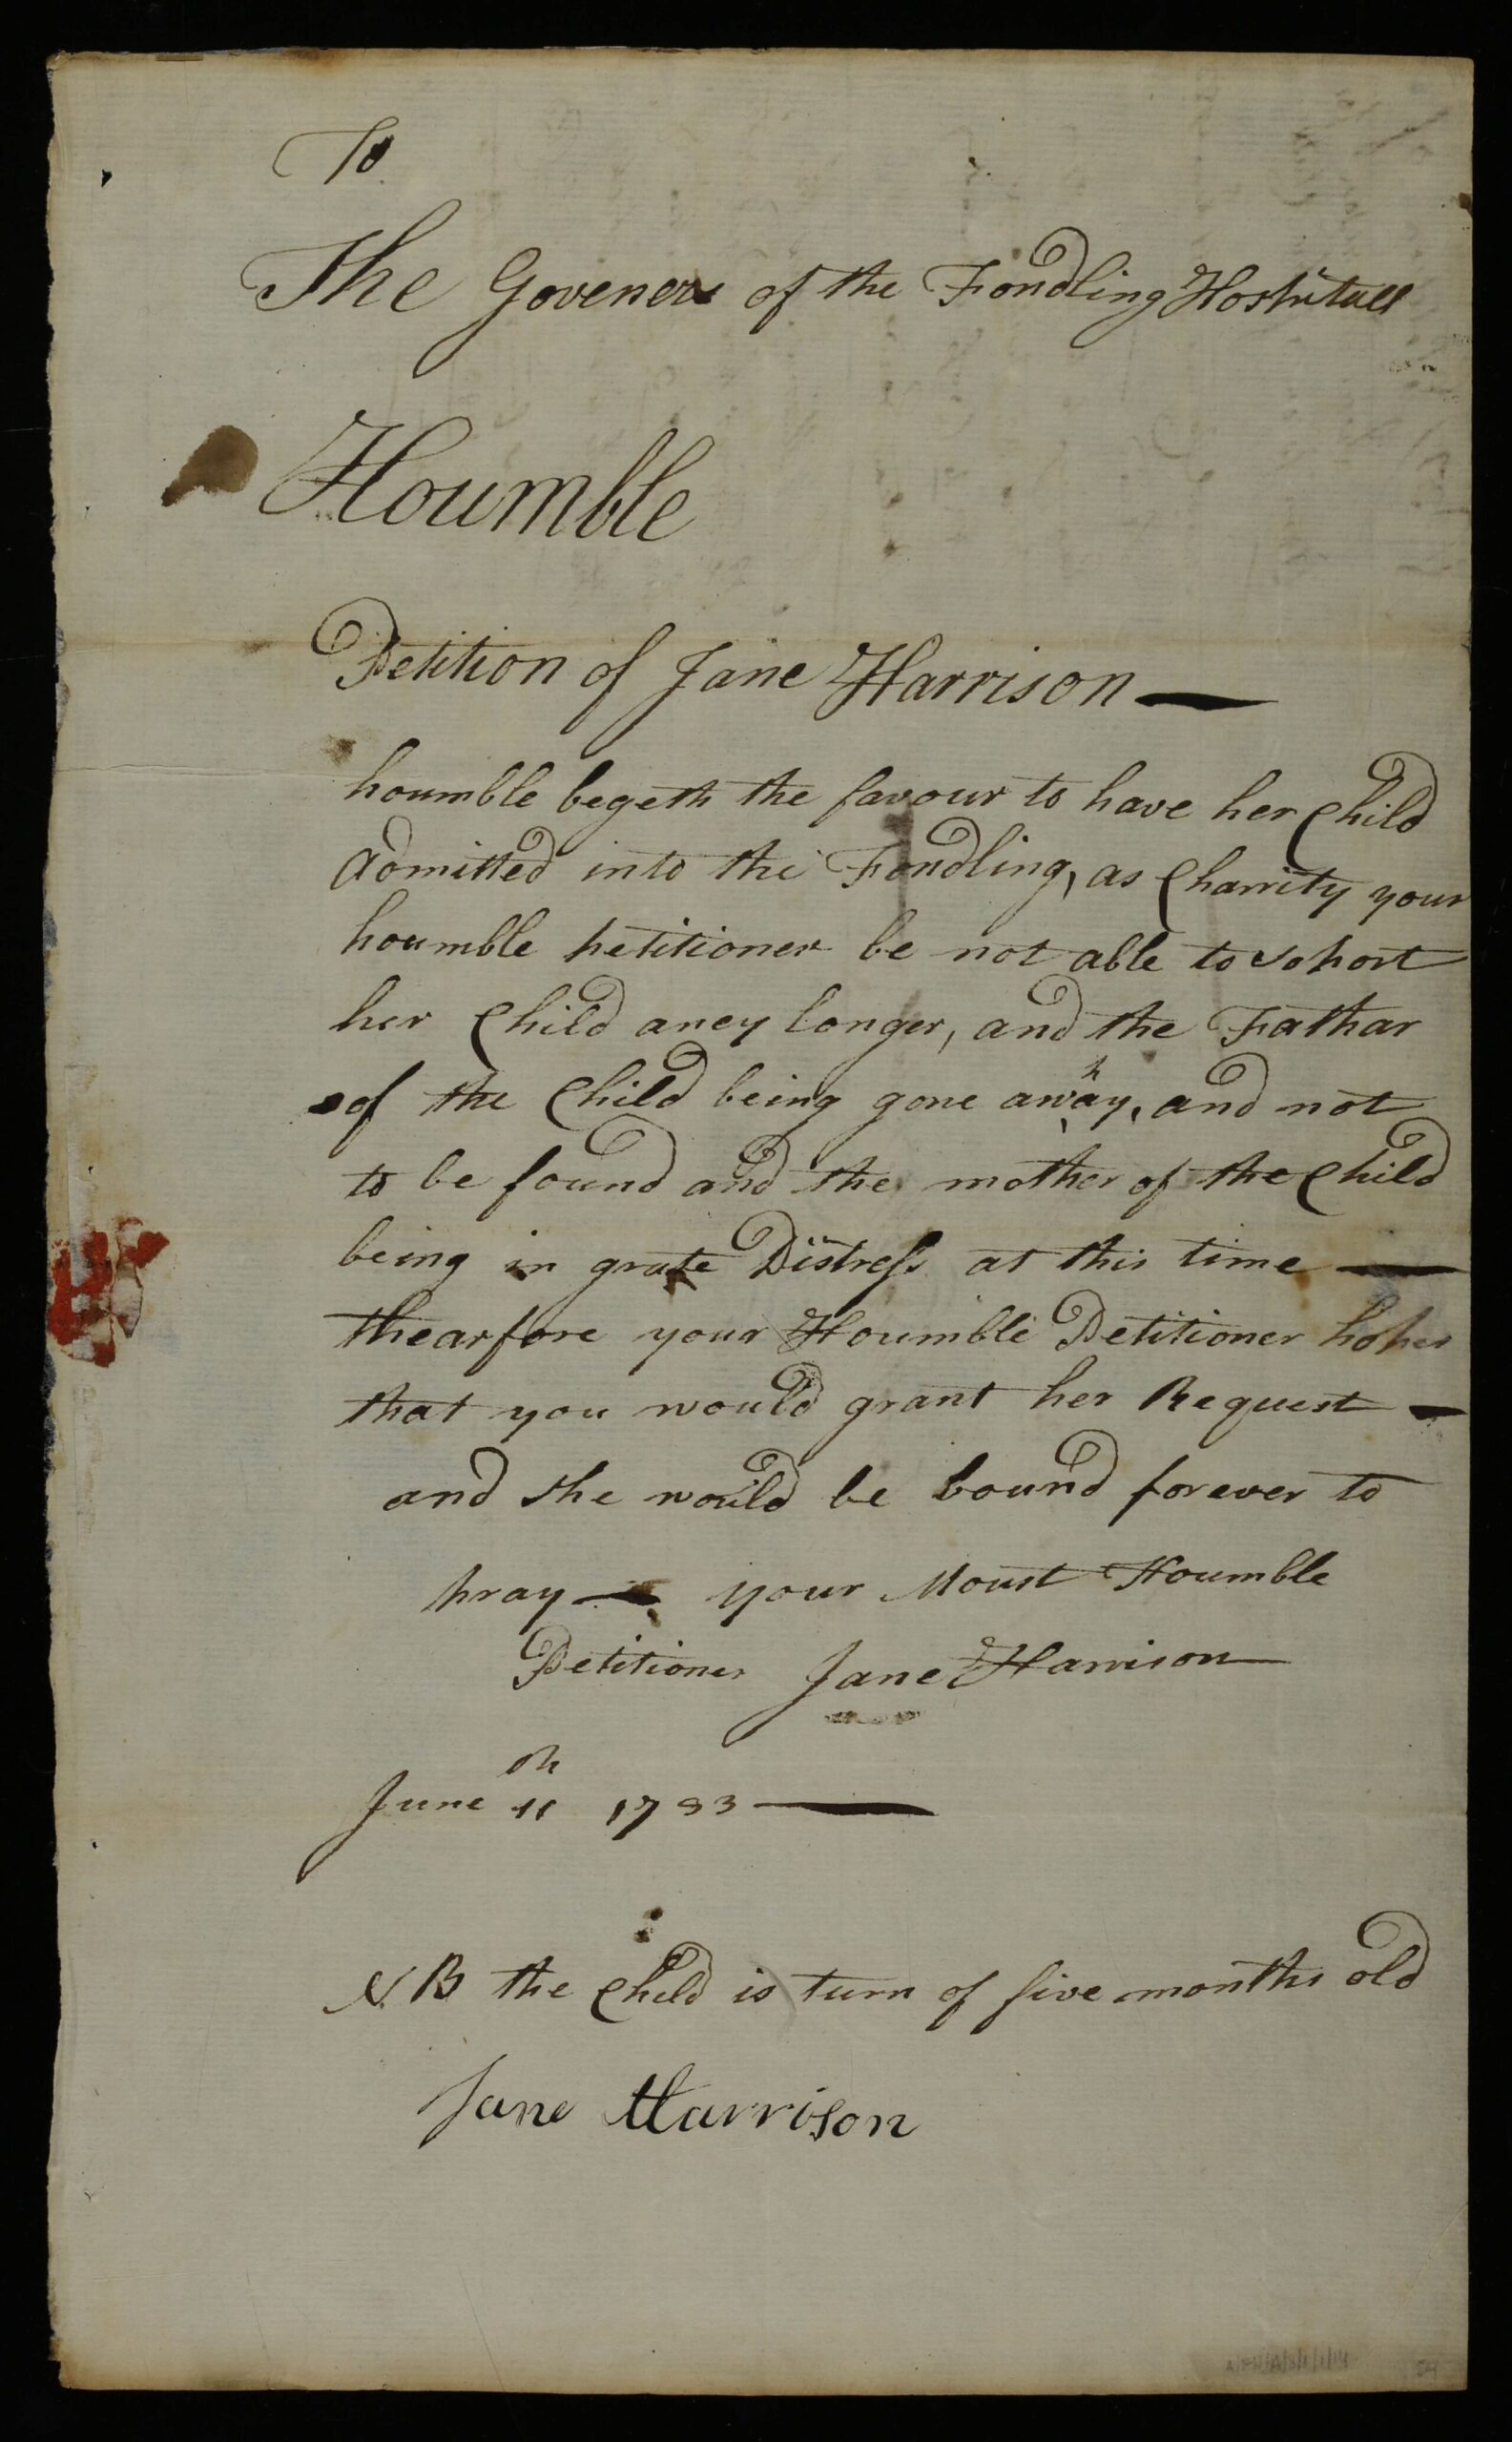 To
The Goveners of the Fondling Hospitull
Houmble
Petition of Jane Harrison —
houmble begeth the favour to have her Child
admitted into the Fondling, as Charrity your
houmble petitioner be not able to soport
her Child aney longer, and the Fathar
of the Child being gone away, and not
to be found and the mother of the Child
being in grate Distress at this time —
thearfore your Houmble Petitioner hopes
that you would grant her Request —
and she would be bound forever to
pray — your Moust Houmble
Petitioner Jane Harrison
June 11th 1783 —
N.B the Child is turn of five months old
Jane Harrison